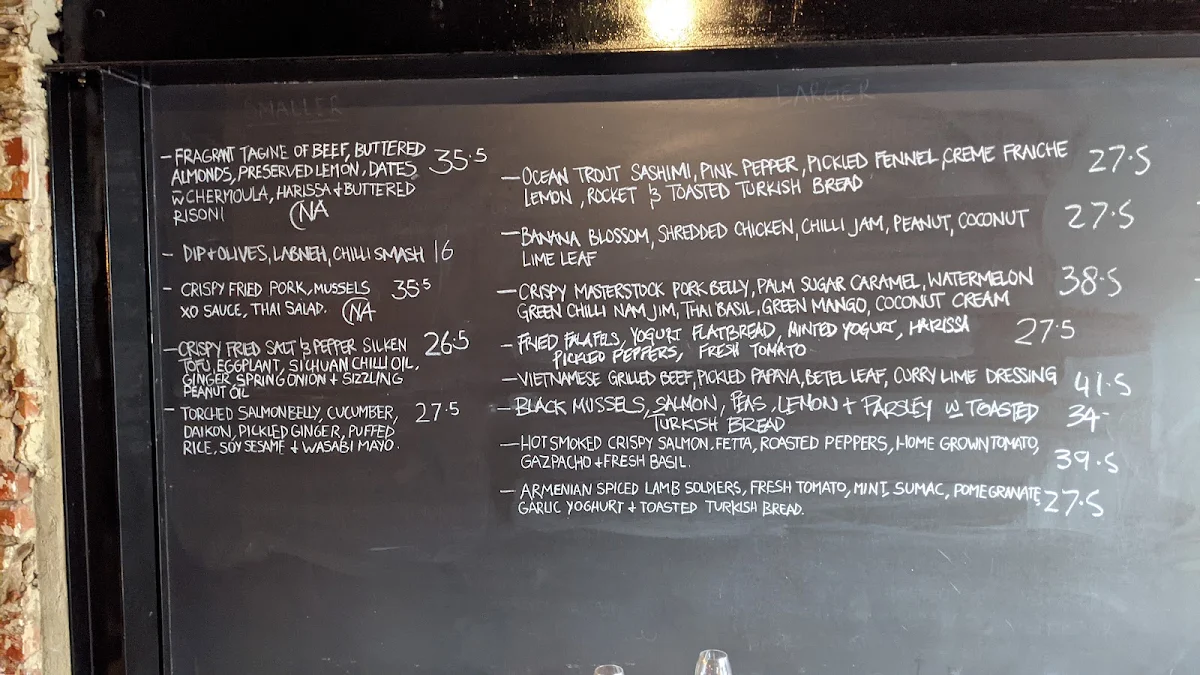 SMALLER
- FRAGRANT TAGINE OF BEEF, BUTTERED 35.5
ALMONDS, PRESERVED LEMON, DATES
w CHERMOULA, HARISSA + BUTTERED
RISONI NA
- DIP + OLIVES, LABNEH, CHILLI SMASH 16
- CRISPY FRIED PORK, MUSSELS 35.5
XO SAUCE, THAI SALAD. NA
- CRISPY FRIED SALT & PEPPER SILKEN 26.5
TOFU, EGGPLANT, SICHUAN CHILLI OIL,
GINGER, SPRING ONION + SIZZLING
PEANUT OIL
- TORCHED SALMON BELLY, CUCUMBER, 27.5
DAIKON, PICKLED GINGER, PUFFED
RICE, SOY SESAME + WASABI MAYO.
LARGER
- OCEAN TROUT SASHIMI, PINK PEPPER, PICKLED FENNEL, CREME FRAICHE 27.5
LEMON, ROCKET & TOASTED TURKISH BREAD
- BANANA BLOSSOM, SHREDDED CHICKEN, CHILLI JAM, PEANUT, COCONUT 27.5
LIME LEAF
- CRISPY MASTERSTOCK PORK BELLY, PALM SUGAR CARAMEL, WATERMELON 38.5
GREEN CHILLI NAM JIM, THAI BASIL, GREEN MANGO, COCONUT CREAM
- FRIED FALAFELS, YOGURT FLATBREAD, MINTED YOGURT, HARISSA 27.5
PICKLED PEPPERS, FRESH TOMATO
- VIETNAMESE GRILLED BEEF, PICKLED PAPAYA, BETEL LEAF, CURRY LIME DRESSING 41.5
- BLACK MUSSELS, SALMON, PEAS, LEMON + PARSLEY W TOASTED 34-
TURKISH BREAD
- HOT SMOKED CRISPY SALMON, FETTA, ROASTED PEPPERS, HOME GROWN TOMATO, 39.5
GAZPACHO + FRESH BASIL.
- ARMENIAN SPICED LAMB SOLDIERS, FRESH TOMATO, MINT, SUMAC, POMEGRANATE, 27.5
GARLIC YOGHURT + TOASTED TURKISH BREAD.